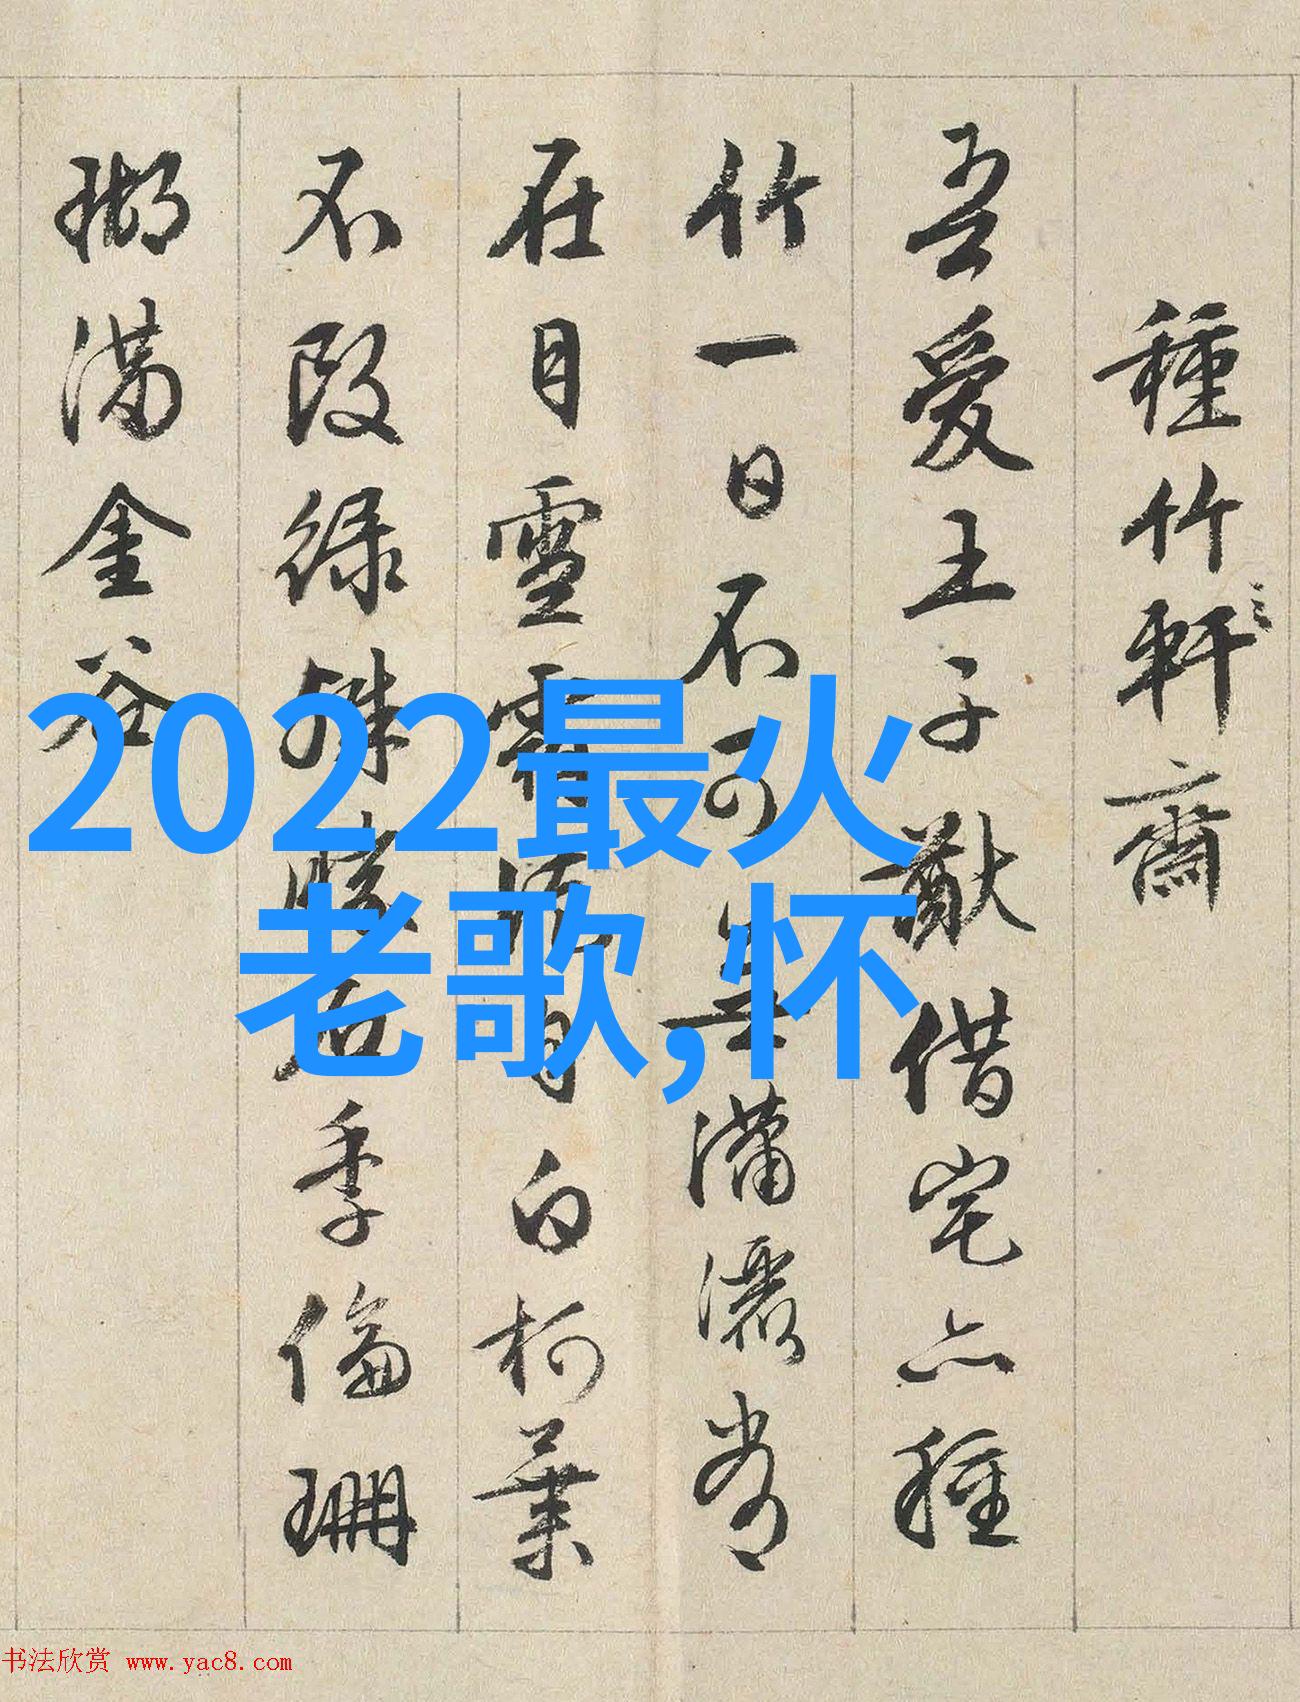 種竹軒齋
之
吾愛王子猷借宅亦種
竹一日不可無瀟灑常
在目雪霜徒自白柯葉
不改綠殊勝石季倫珊
瑚滿金谷
2022最火
老歌,怀
书法欣赏 www.yac8.com